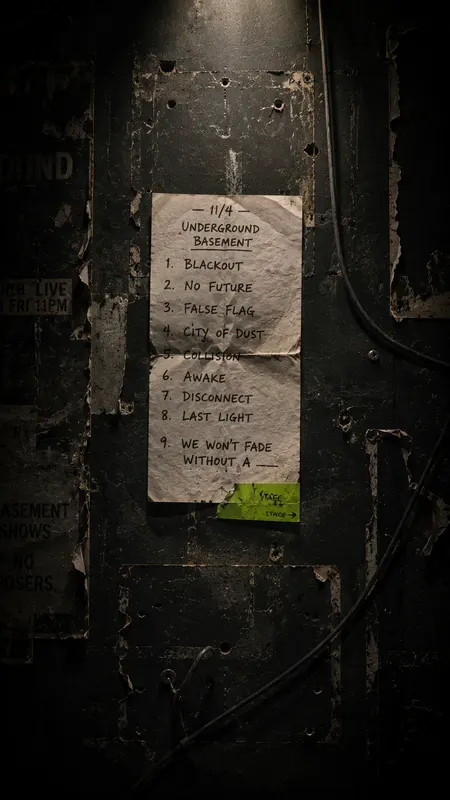 — 11/4 —
UNDERGROUND
BASEMENT
1. BLACKOUT
2. NO FUTURE
3. FALSE FLAG
4. CITY OF DUST
5. COLLISION
6. AWAKE
7. DISCONNECT
8. LAST LIGHT
9. WE WON'T FADE
WITHOUT A ___
STAGE
→
LIVE
FRI 11PM
ASEMENT
SHOWS
NO
POSERS